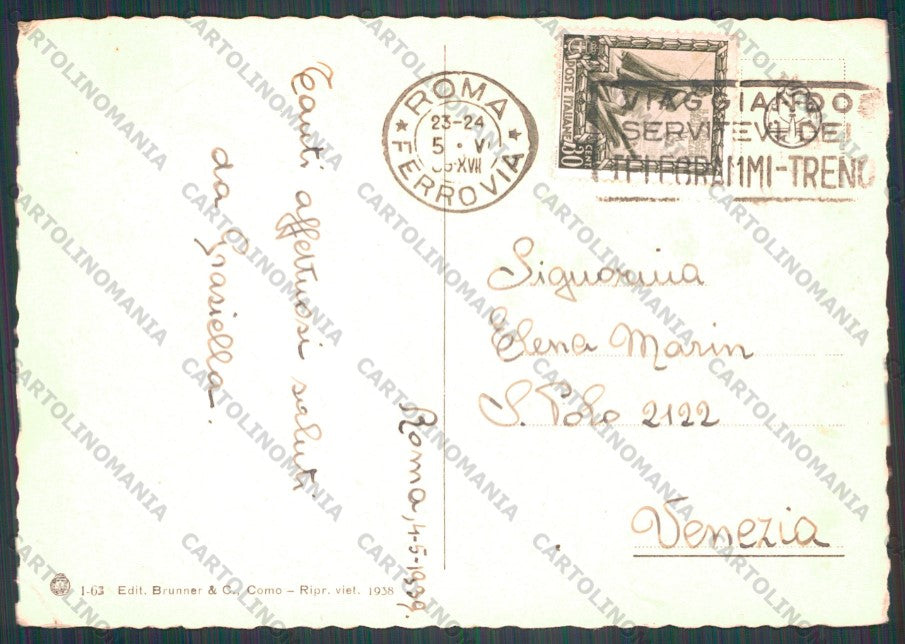 Tanti affettuosi saluti
da Grasiella.
Roma, 4-5-1939,
ROMA
23-24
5 · V
XVII
FERROVIA
POSTE ITALIANE
30
VIAGGIANDO
SERVITEVI DEI
TELEGRAMMI-TRENO
Signorina
Elena Marin
S. Polo 2122
Venezia
1-63 Edit. Brunner & C., Como – Ripr. viet. 1938
CARTOLINOMANIA